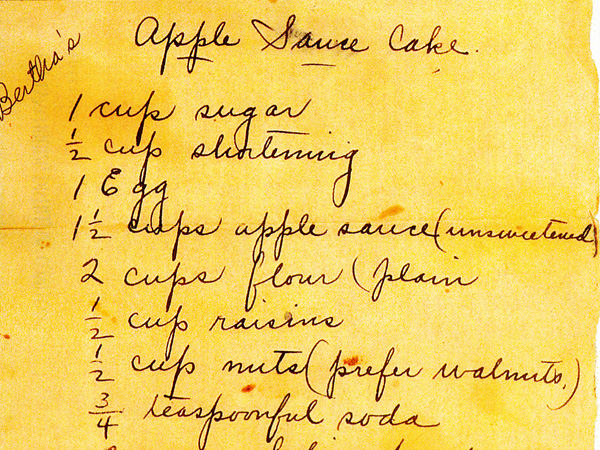 Bertha's
Apple Sauce Cake.
1 cup sugar
1/2 cup shortening
1 Egg
1 1/2 cups apple sauce (unsweetened)
2 cups flour (plain
1/2 cup raisins
1/2 cup nuts (prefer walnuts.)
3/4 teaspoonful soda